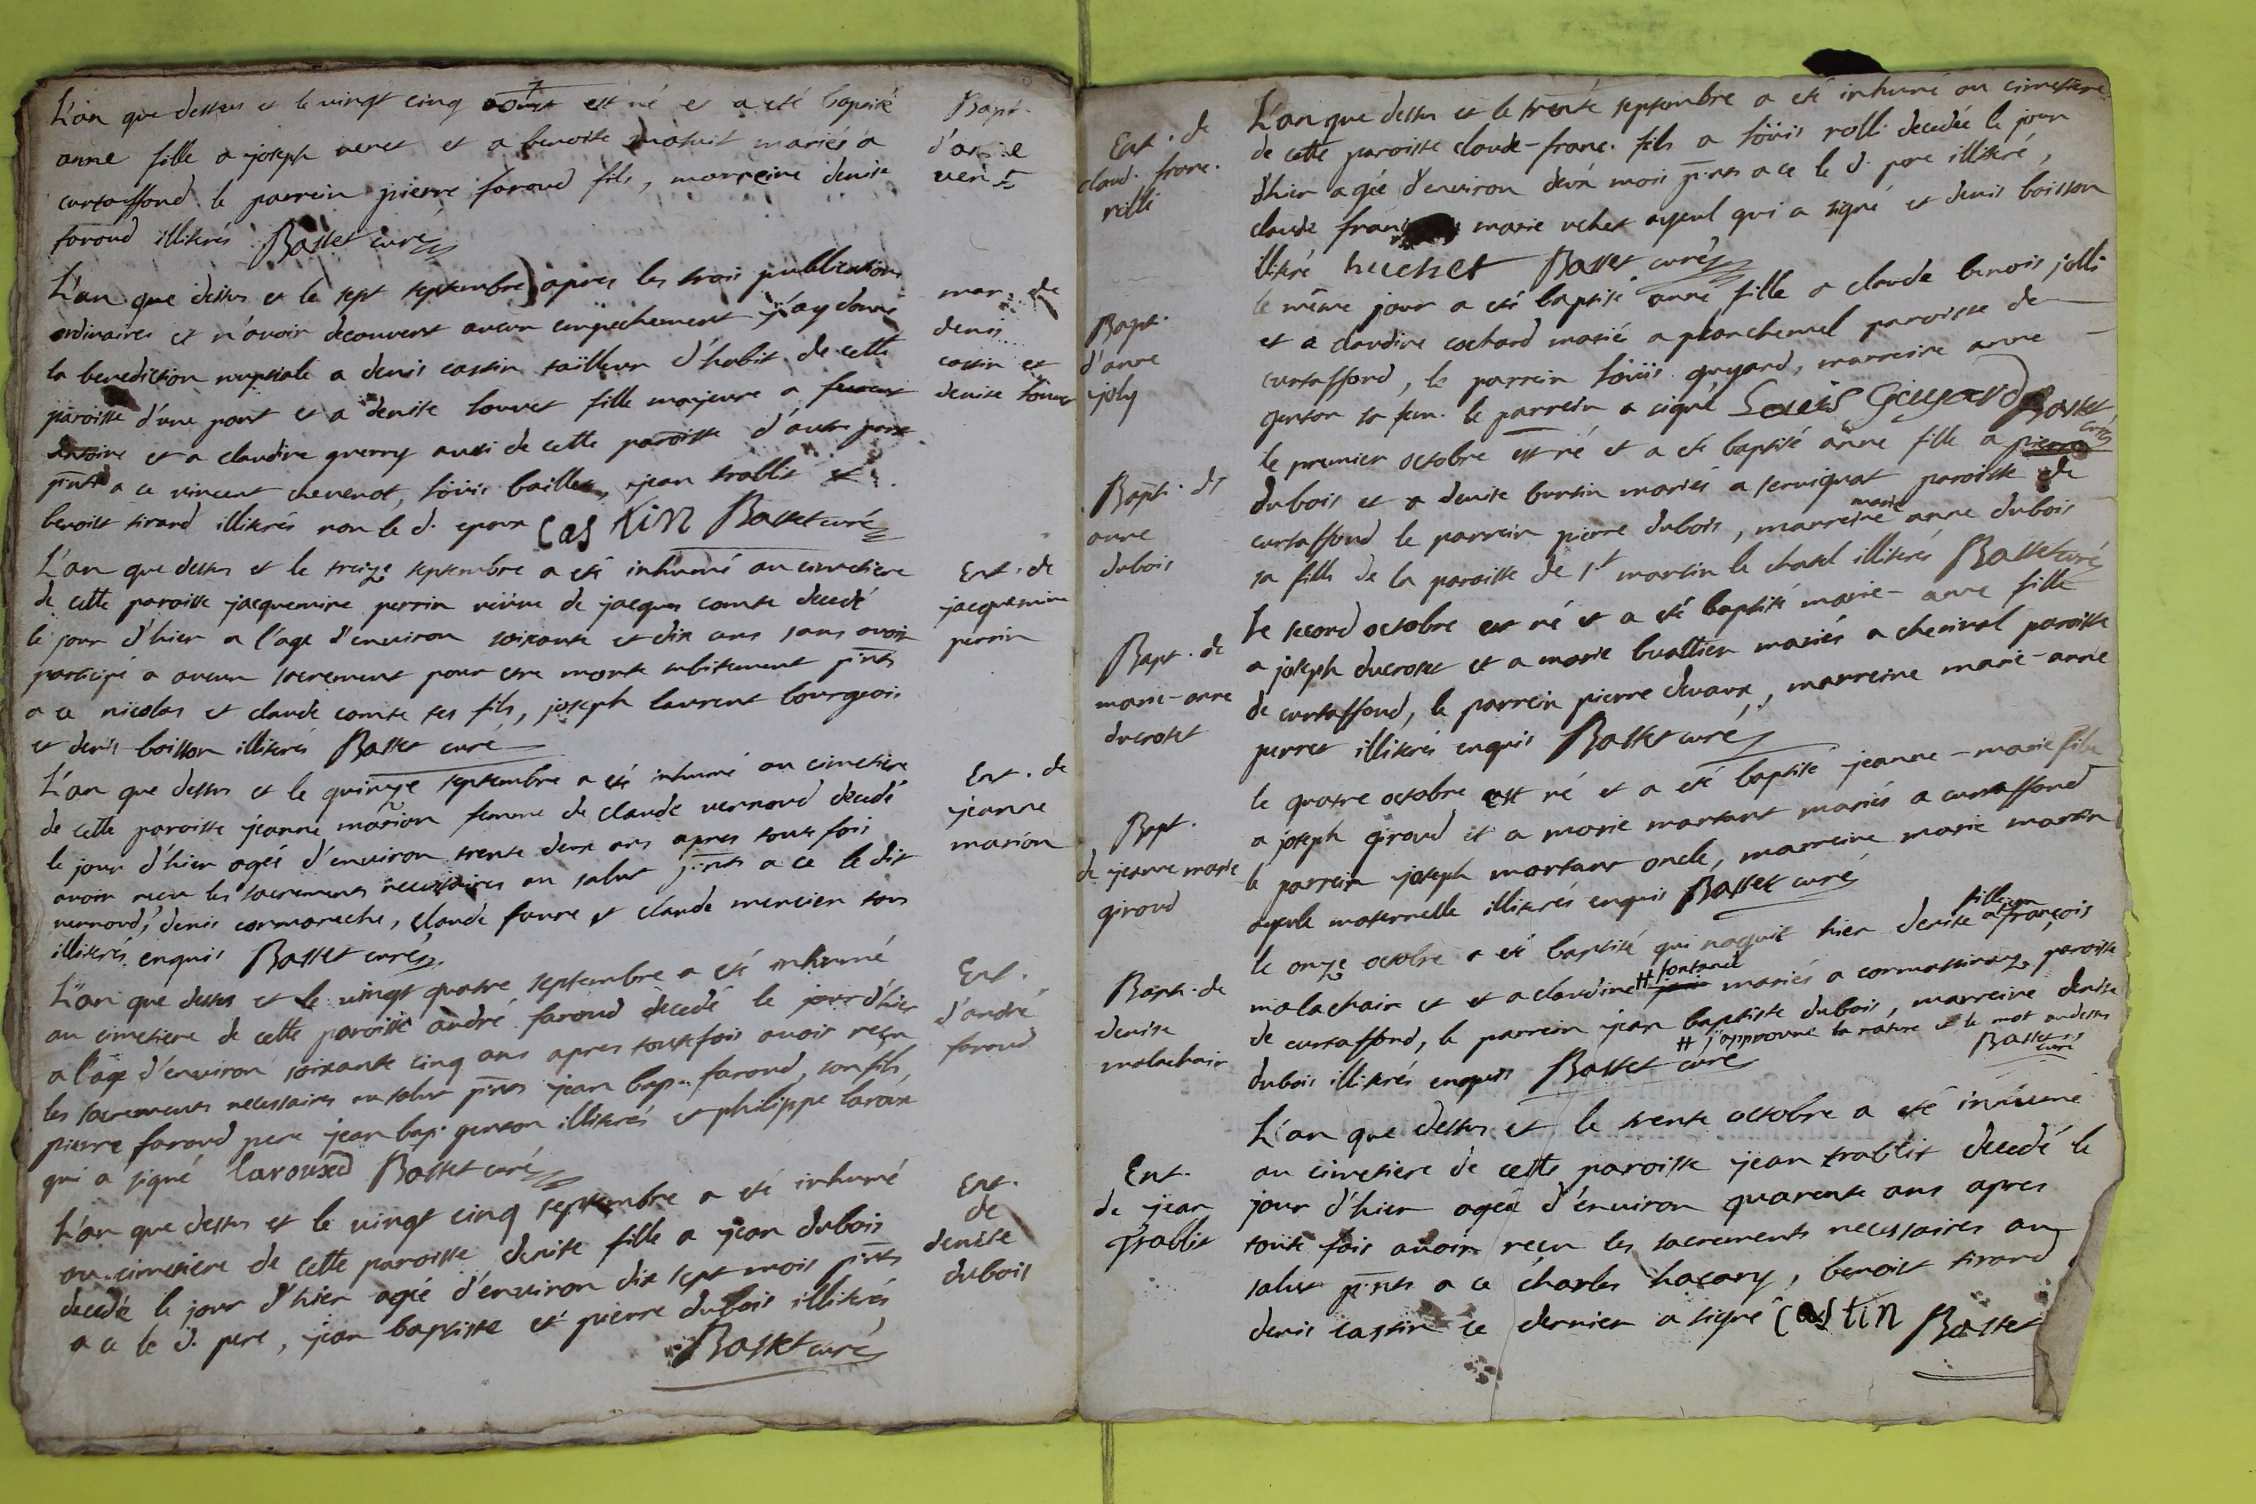 L'an que dessus et le vingt cinq aoust est né et a eté baptisé
anne fille a joseph venet et a benoite matuit mariés a
curtaffond le parrein pierre faroud fils, marreine denise
faroud illiterés Basset curé
Bapt.
d'anne
venet
L'an que dessus et le sept septembre apres les trois publications
ordinaires et n'avoir decouvert aucun empechement j'ay donné
la benediction nuptiale a denis castin tailleur d'habit de cette
paroisse d'une part et a denise louvet fille majeure a
antoine et a claudine guerry aussi de cette paroisse d'autre part
p:nts a ce vincent chevenot, loüis baillet, jean trablit et
benoist tirard illiterés non le d. epoux Castin Basset curé
mar. de
denis
castin et
denise louvet
L'an que dessus et le treize septembre a eté inhumé au cimetiere
de cette paroisse jacquemine perrin veuve de jacques comte decedé
le jour d'hier a l'age d'environ soixante et dix ans sans avoir
participé a aucun sacrement pour etre morte subitement p:nts
a ce nicolas et claude comte ses fils, joseph laurent bourgeois
et denis boisson illiterés Basset curé
Ent. de
jacquemine
perrin
L'an que dessus et le quinze septembre a eté inhumé au cimetiere
de cette paroisse jeanne marion femme de claude vernoud decedé
le jour d'hier agée d'environ trente deux ans apres toute fois
avoir reçu les sacrements necessaires au salut p:nts a ce le dit
vernoud, denis cormareche, claude favre et claude mercier tous
illiterés enquis Basset curé
Ent. de
jeanne
marion
L'an que dessus et le vingt quatre septembre a eté inhumé
au cimetiere de cette paroisse andré faroud decedé le jour d'hier
a l'age d'environ soixante cinq ans apres toutefois avoir reçu
les sacrements necessaires au salut p:nts jean bap. faroud, son fils,
pierre faroud pere jean bap. genton illiterés et philippe laroux
qui a signé Larouxd Basset curé
Ent.
d'andré
faroud
L'an que dessus et le vingt cinq septembre a eté inhumé
au cimetiere de cette paroisse denise fille a jean dubois
decedée le jour d'hier agée d'environ dix sept mois p:nts
a ce le d. pere, jean baptiste et pierre dubois illiterés
Basset curé
Ent.
de
denise
dubois
Ent. de
claud. franc.
rolli
L'an que dessus et le trente septembre a eté inhumé au cimetiere
de cette paroisse claude-franc. fils a loüis rolli decedée le jour
d'hier agée d'environ deux mois p:nts a ce le d. pere illiteré,
claude marie vechet ayeul qui a signé et denis boisson
illiteré hechet Basset curé
Bapt.
d'anne
joly
le même jour a eté baptisé anne fille a claude benois jolli
et a claudine cochard mariés a planchemel paroisse de
curtaffond, le parrein loüis guyard, marreine anne
genton sa fem. le parrein a signé Louis Guyard Basset
curé
Bapt. de
anne
dubois
le premier octobre est né et a eté baptisé anne fille a pierre
dubois et a denise burtin mariés a servignat paroisse de
curtaffond le parrein pierre dubois, marreine marie anne dubois
sa fille de la paroisse de st martin le chatel illiterés Basset curé
Bapt. de
marie-anne
ducroset
Le second octobre est né et a eté baptisé marie-anne fille
a joseph ducroset et a marie buattier mariés a chevinal paroisse
de curtaffond, le parrein pierre devaux, marreine marie-anne
perret illiterés enquis Basset curé
Bapt.
de jeanne marie
giroud
le quatre octobre est né et a eté baptisé jeanne-marie fille
a joseph giroud et a marie martant mariés a curtaffond
le parrein joseph martant oncle, marreine marie martin
ayeule maternelle illiterés enquis Basset curé
Bapt. de
denise
malachair
le onze octobre a eté baptisé qui naquit hier denise fille a françois
malachair et et a claudine # fontanel mariés a cormassiraz paroisse
de curtaffond, le parrein jean baptiste dubois, marreine denise
dubois illiterés enquis Basset curé
# j'approuve la rature et le mot audessus
Basset
curé
Ent.
de jean
trablit
L'an que dessus et le trente octobre a eté inhumé
au cimetiere de cette paroisse jean trablit decedé le
jour d'hier agée d'environ quarente ans apres
toute fois avoir reçu les sacrements necessaires au
salut p:nts a ce charles hacary, benoist tirard
denis castin ce dernier a signé Castin Basset